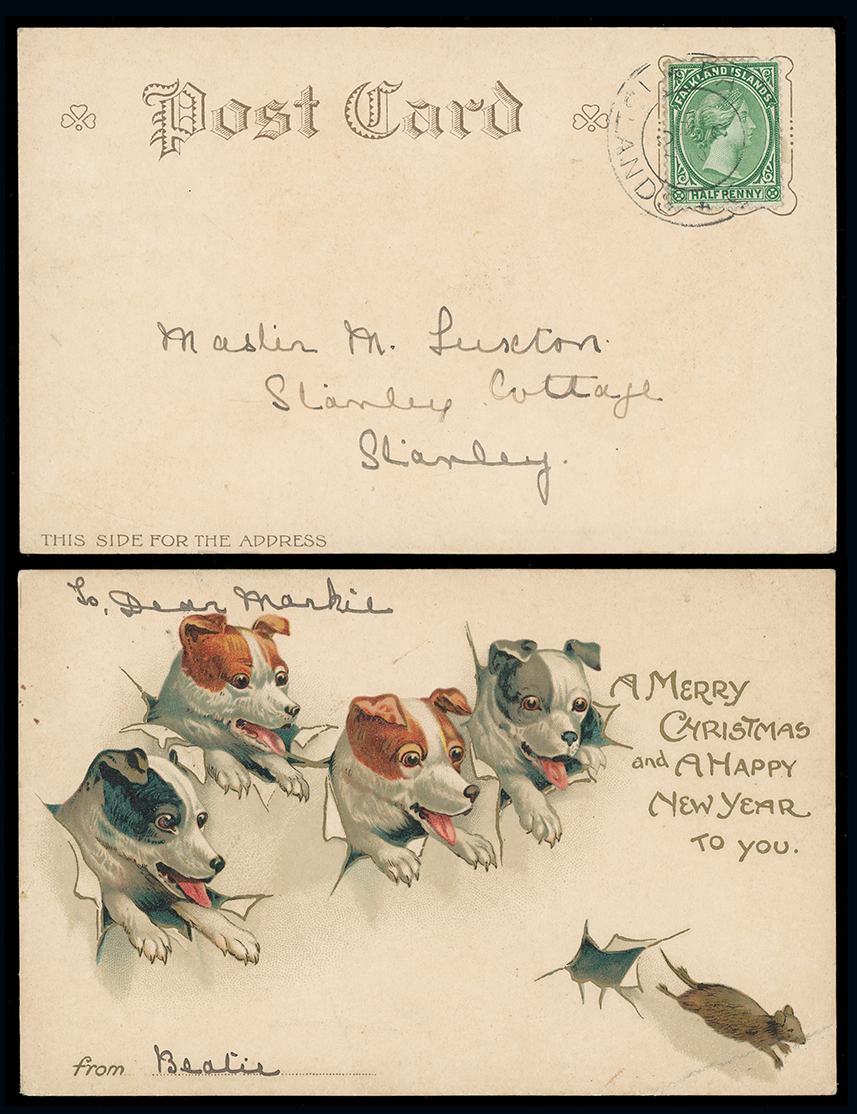 Post Card
FALKLAND ISLANDS
HALFPENNY
ISLANDS
Master M. Luxton.
Stanley Cottage
Stanley.
THIS SIDE FOR THE ADDRESS
To, Dear Markie
A MERRY
CHRISTMAS
and A HAPPY
NEW YEAR
TO YOU.
from Beatie